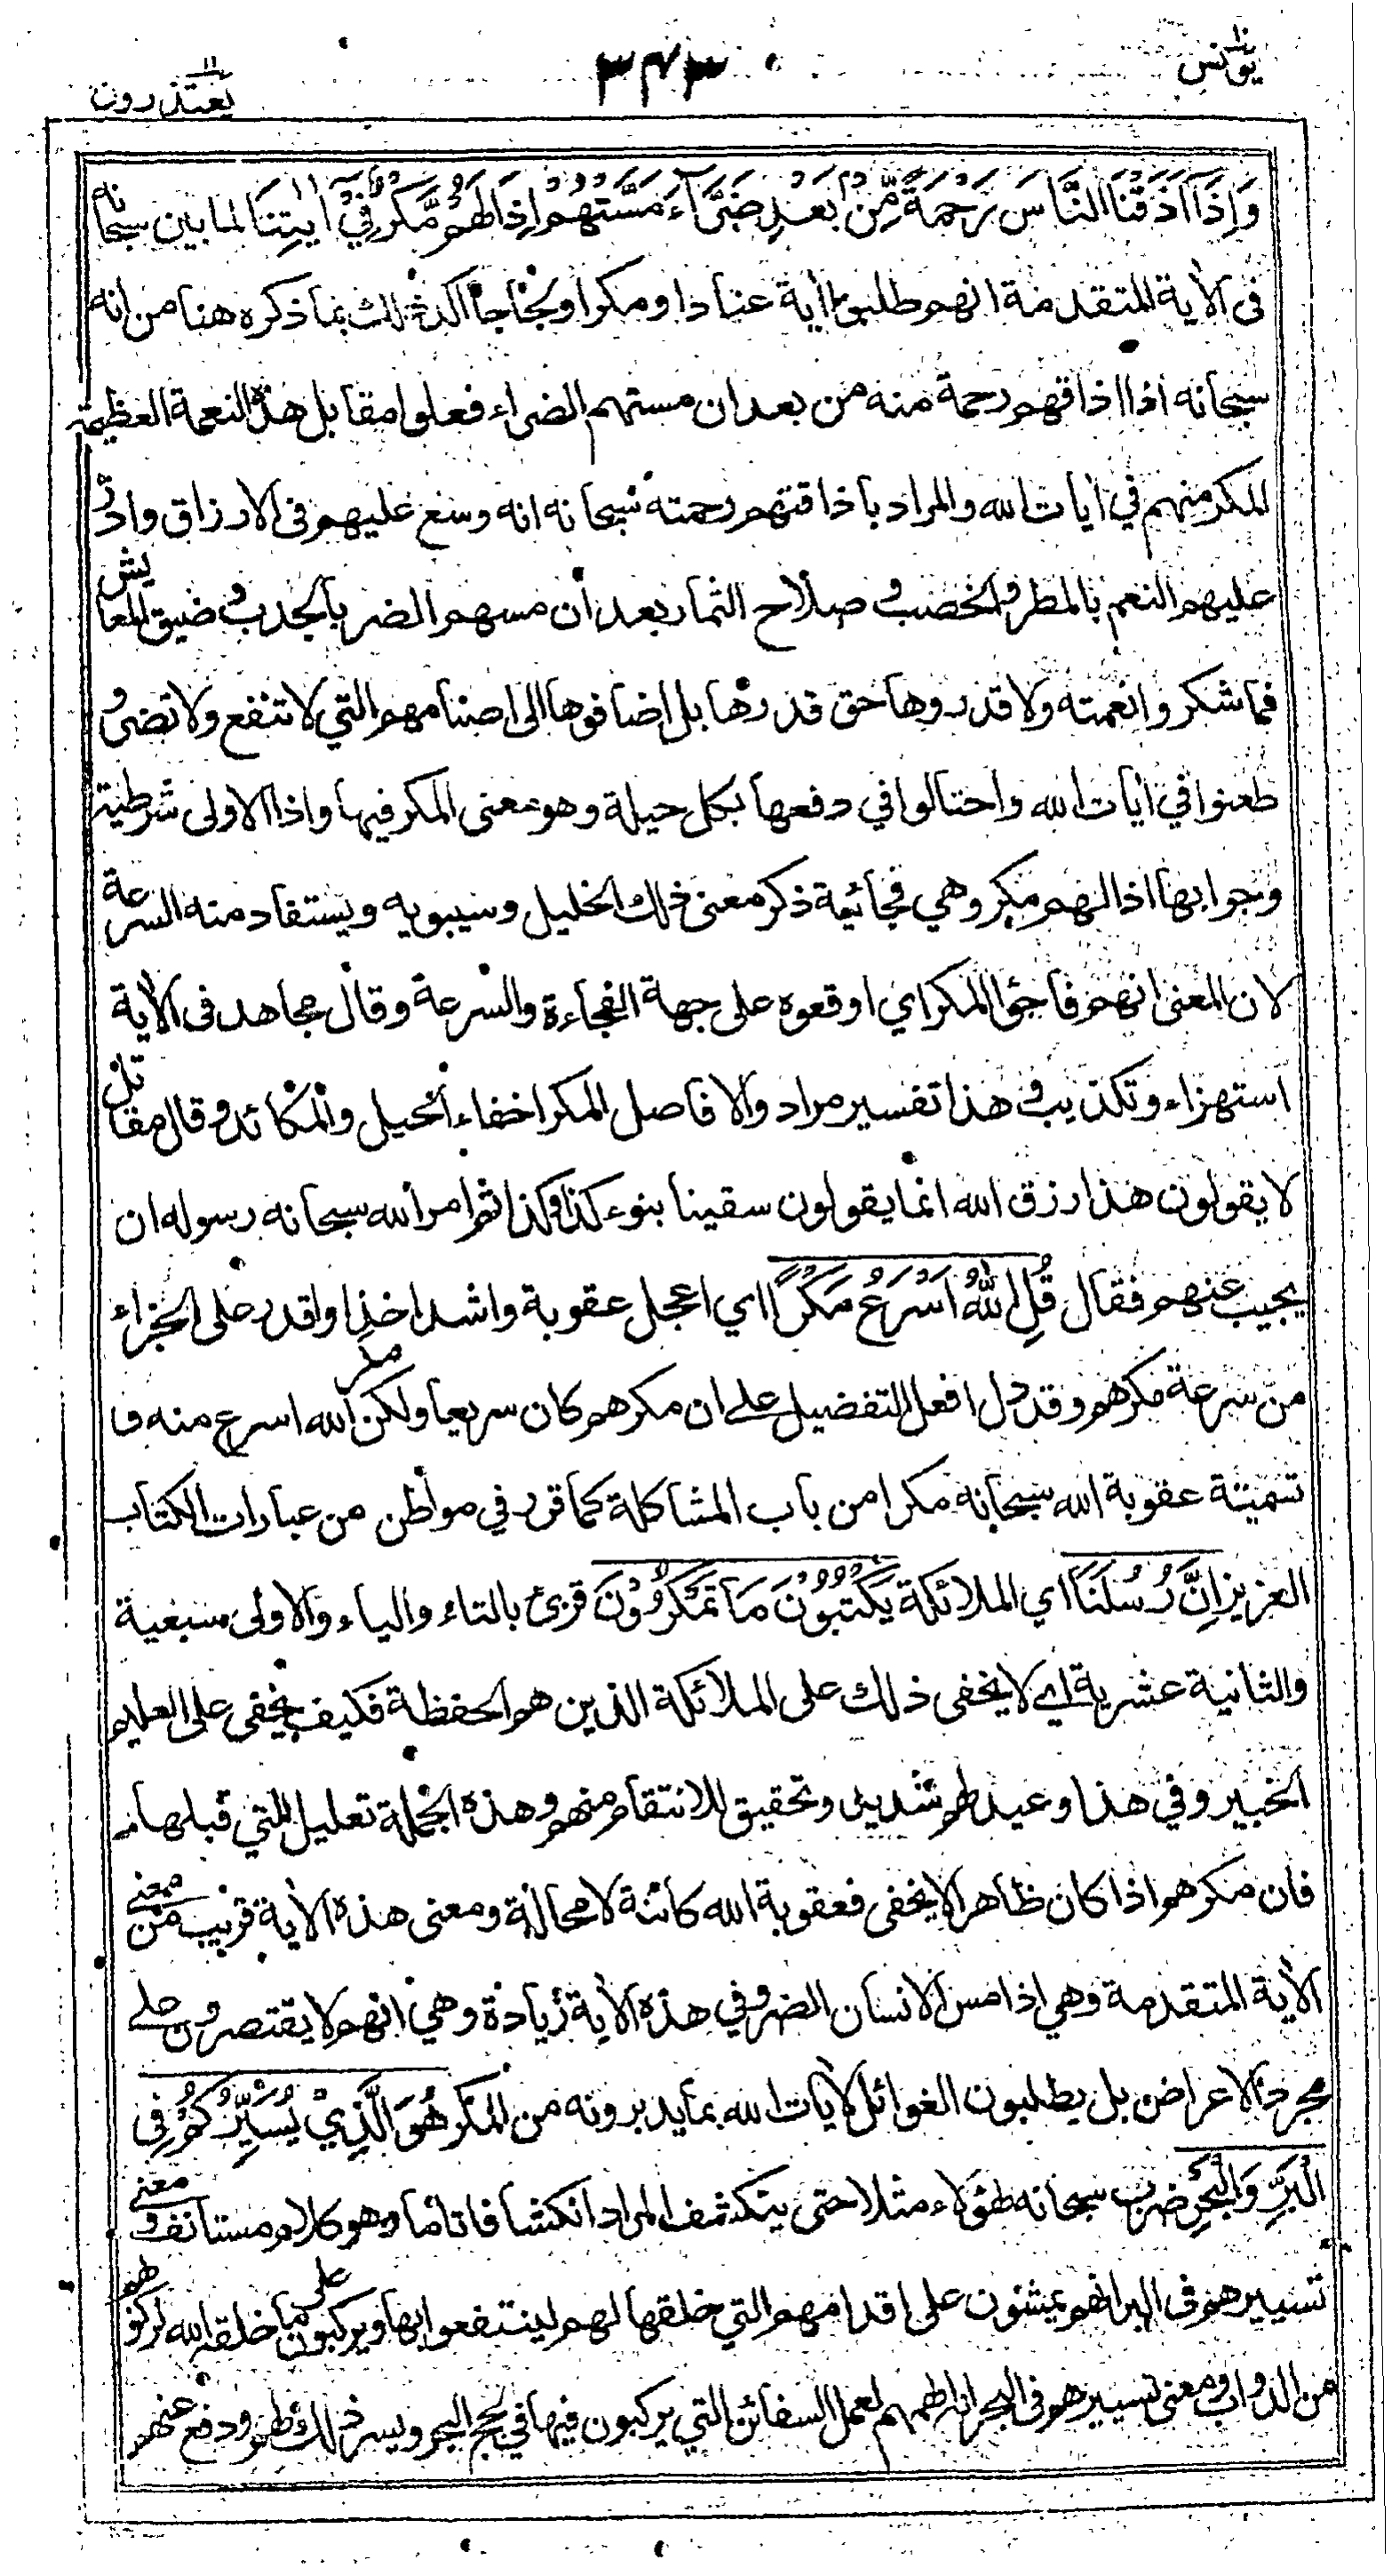 يونس ١٠
٣٤٣
يعتذرون ١١
وَإِذَا أَذَقْنَا النَّاسَ رَحْمَةً مِّنْ بَعْدِ ضَرَّآءَ مَسَّتْهُمْ إِذَا لَهُمْ مَّكْرٌ فِيْ آيٰتِنَا لما بين سبحانه
فى الأية المتقدمة انهم طلبوا أية عنادا ومكرا ولجاجا اكد ذلك بما ذكره هنا من انه
سبحانه اذا اذاقهم رحمة منه من بعد ان مستهم الضراء فعلوا مقابل هذه النعمة العظيمة
المكر منهم في أيات الله والمراد باذاقتهم رحمته سبحانه انه وسع عليهم فى الارزاق وادرّ
عليهم النعم بالمطر والخصب و صلاح الثمار بعد أن مسهم الضر بالجدب و ضيق المعايش
فما شكروا نعمته ولا قدروها حق قدرها بل اضافوها الى اصنامهم التي لا تنفع ولا تضر و
طعنوا في أيات الله واحتالوا في دفعها بكل حيلة وهو معنى المكر فيها واذا الاولى شرطية
وجوابها اذا لهم مكر وهي فجائية ذكر معنى ذلك الخليل وسيبويه ويستفاد منه السرعة
لان المعنى انهم فاجئوا المكر اي اوقعوه على جهة الفجاءة والسرعة وقال مجاهد فى الأية
استهزاء وتكذيب و هذا تفسير مراد والا فاصل المكر اخفاء الحيل والمكائد وقال مقاتل
لا يقولون هذا رزق الله انما يقولون سقينا بنوء كذا وكذا ثم امر الله سبحانه رسوله ان
يجيب عنهم فقال قُلِ اللهُ اَسْرَعُ مَكْرًا اي اعجل عقوبة واشد اخذا واقدر على الجزاء
من سرعة مكرهم وقد دل افعل التفضيل على ان مكرهم كان سريعا ولكن مكر الله اسرع منه و
تسمية عقوبة الله سبحانه مكرا من باب المشاكلة كما قرر في مواطن من عبارات الكتاب
العزيز اِنَّ رُسُلَنَا اي الملائكة يَكْتُبُوْنَ مَا تَمْكُرُوْنَ قرئ بالتاء والياء والاولى سبعية
والثانية عشرية اي لا يخفى ذلك على الملائكة الذين هم الحفظة فكيف يخفى على العليم
الخبير وفي هذا وعيد لهم شديد وتحقيق للانتقام منهم وهذه الجملة تعليل للتي قبلها
فان مكرهم اذا كان ظاهرا لا يخفى فعقوبة الله كائنة لا محالة ومعنى هذه الأية قريب من معنى
الأية المتقدمة وهي اذا مس الانسان الضر وفي هذه الأية زيادة وهي انهم لا يقتصرون على
مجرد الاعراض بل يطلبون الغوائل لأيات الله بما يدبرونه من المكر هُوَ الَّذِيْ يُسَيِّرُكُمْ فِي
الْبَرِّ وَالْبَحْرِ ضرب سبحانه لهؤلاء مثلا حتى ينكشف المراد انكشافا تاما وهو كلام مستأنف و معنى
تسييرهم فى البر انهم يمشون على اقدامهم التي خلقها لهم لينتفعوا بها ويركبون على ما خلقه الله لركوبهم
من الدواب ومعنى تسييرهم فى البحر انه الهمهم لعمل السفائن التي يركبون فيها في لجج البحر ويسر ذلك لهم ودفع عنهم